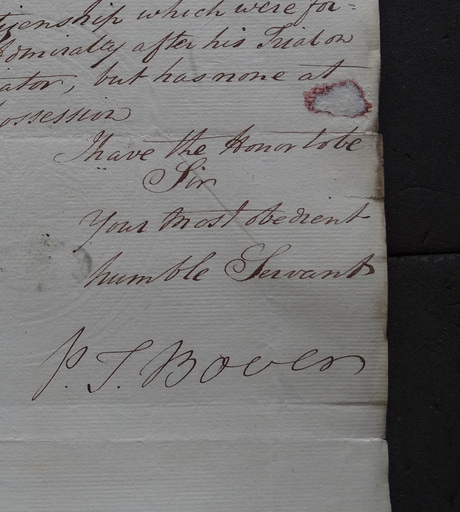 tizenship which were for=
Admirally after his Trial on
ator, but has none at
ossession
I have the Honor to be
Sir
Your Most obedient
humble Servant
P. T. Bover